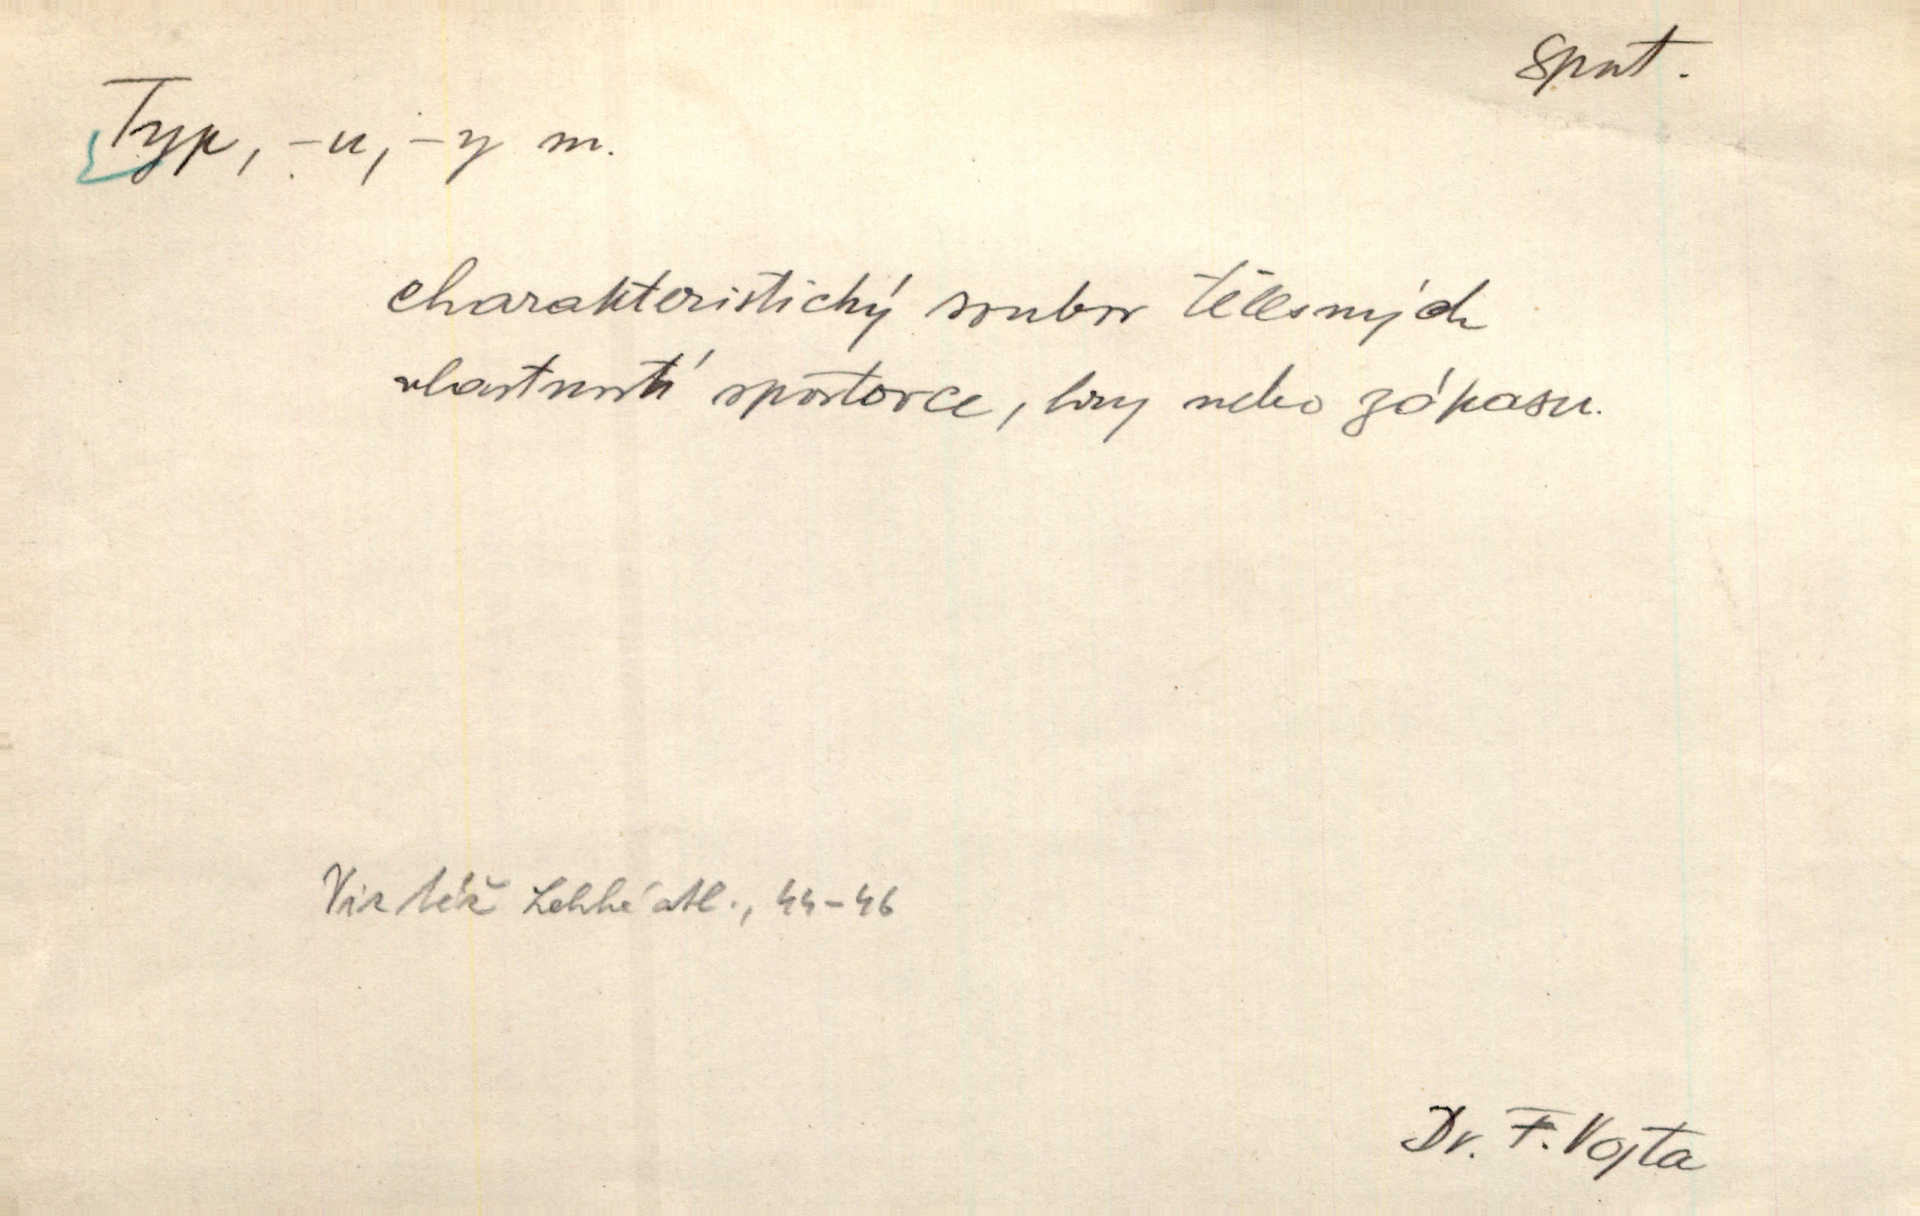 sport.
Typ, -u, -y m.
charakteristický soubor tělesných
vlastností sportovce, hry nebo zápasu.
Viz též Lehké atl., 44-46
Dr. F. Vojta